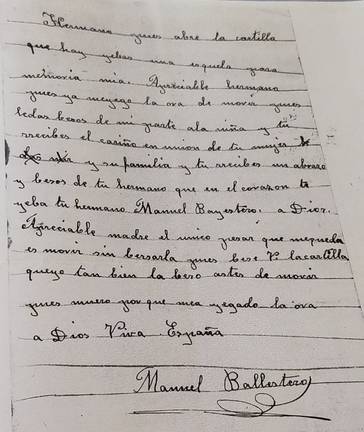 Hermano pues abre la cartilla
que hay yebas una esquela para
memoria mia. Apreciable hermano
pues ya meyego la ora de morir pues
ledas besos de mi parte ala niña y tu
recibes el cariño en union de tu mujer
y su familia y tu recibes un abrazo
y besos de tu hermano que en el corazon te
yeba tu hermano Manuel Bayestero. a Dios.
Apreciable madre el unico pesar que mequeda
es morir sin bersarla pues bese V. lacartilla
queyo tan bien la beso antes de morir
pues muero por que mea yegado la ora
a Dios Viva España
Manuel Ballestero